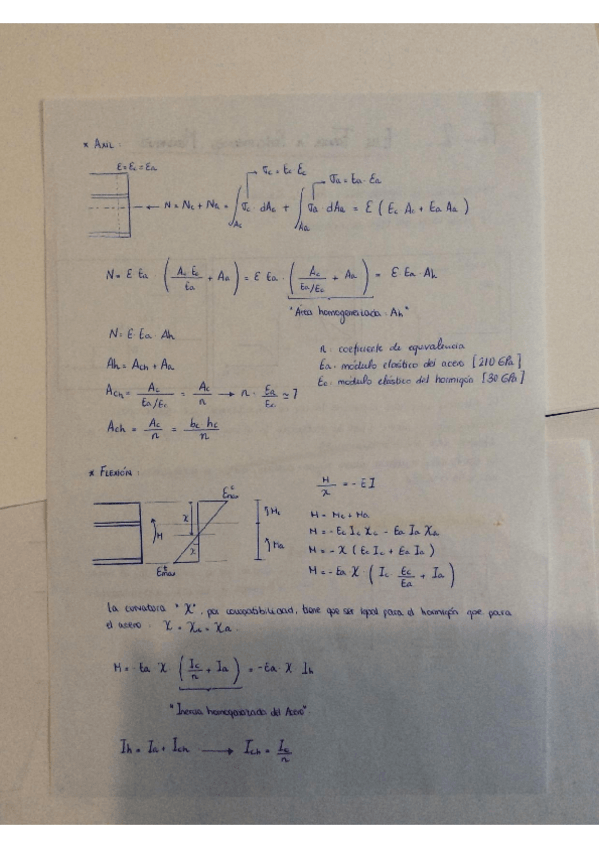 * AXIL :
ε = εc = εa
σc = Ec εc
σa = Ea · εa
N = Nc + Na = ∫Ac σc · dAc + ∫Aa σa · dAa = ε ( Ec Ac + Ea Aa )
N = ε Ea · ( Ac Ec / Ea + Aa ) = ε Ea · ( Ac / (Ea/Ec) + Aa ) = ε Ea · Ah
"Área homogeneizada · Ah"
N = ε · Ea · Ah
n · coeficiente de equivalencia
Ah = Ach + Aa
Ea · módulo elástico del acero [210 GPa]
Ec · módulo elástico del hormigón [30 GPa]
Ach = Ac / (Ea/Ec) = Ac / n → n · Ea / Ec ≃ 7
Ach = Ac / n = bc · hc / n
* FLEXIÓN :
M / χ = - E I
M = Mc + Ma
M = - Ec Ic χc - Ea Ia χa
M = - χ ( Ec Ic + Ea Ia )
M = - Ea χ · ( Ic Ec / Ea + Ia )
χ
M
Mc
Ma
La curvatura "χ", por compatibilidad, tiene que ser igual para el hormigón que para
el acero · χ = χc = χa
M = - Ea χ · ( Ic / n + Ia ) = - Ea · χ Ih
"Inercia homogeneizada del Acero".
Ih = Ia + Ich → Ich = Ic / n